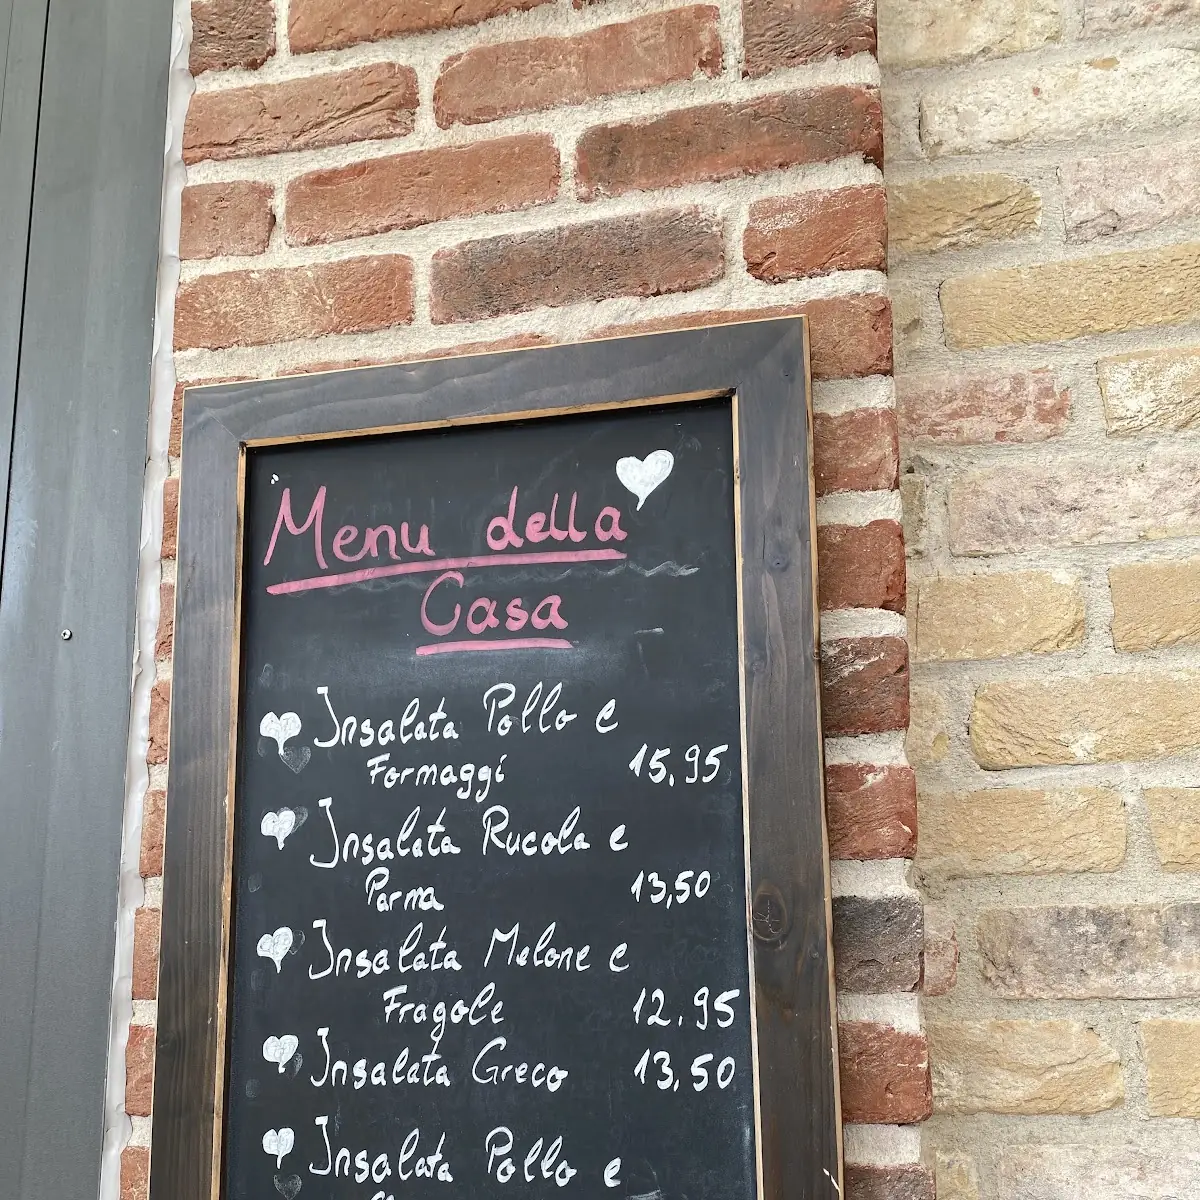 Menu della
Casa
Insalata Pollo e
Formaggi 15,95
Insalata Rucola e
Parma 13,50
Insalata Melone e
Fragole 12.95
Insalata Greco 13,50
Insalata Pollo e